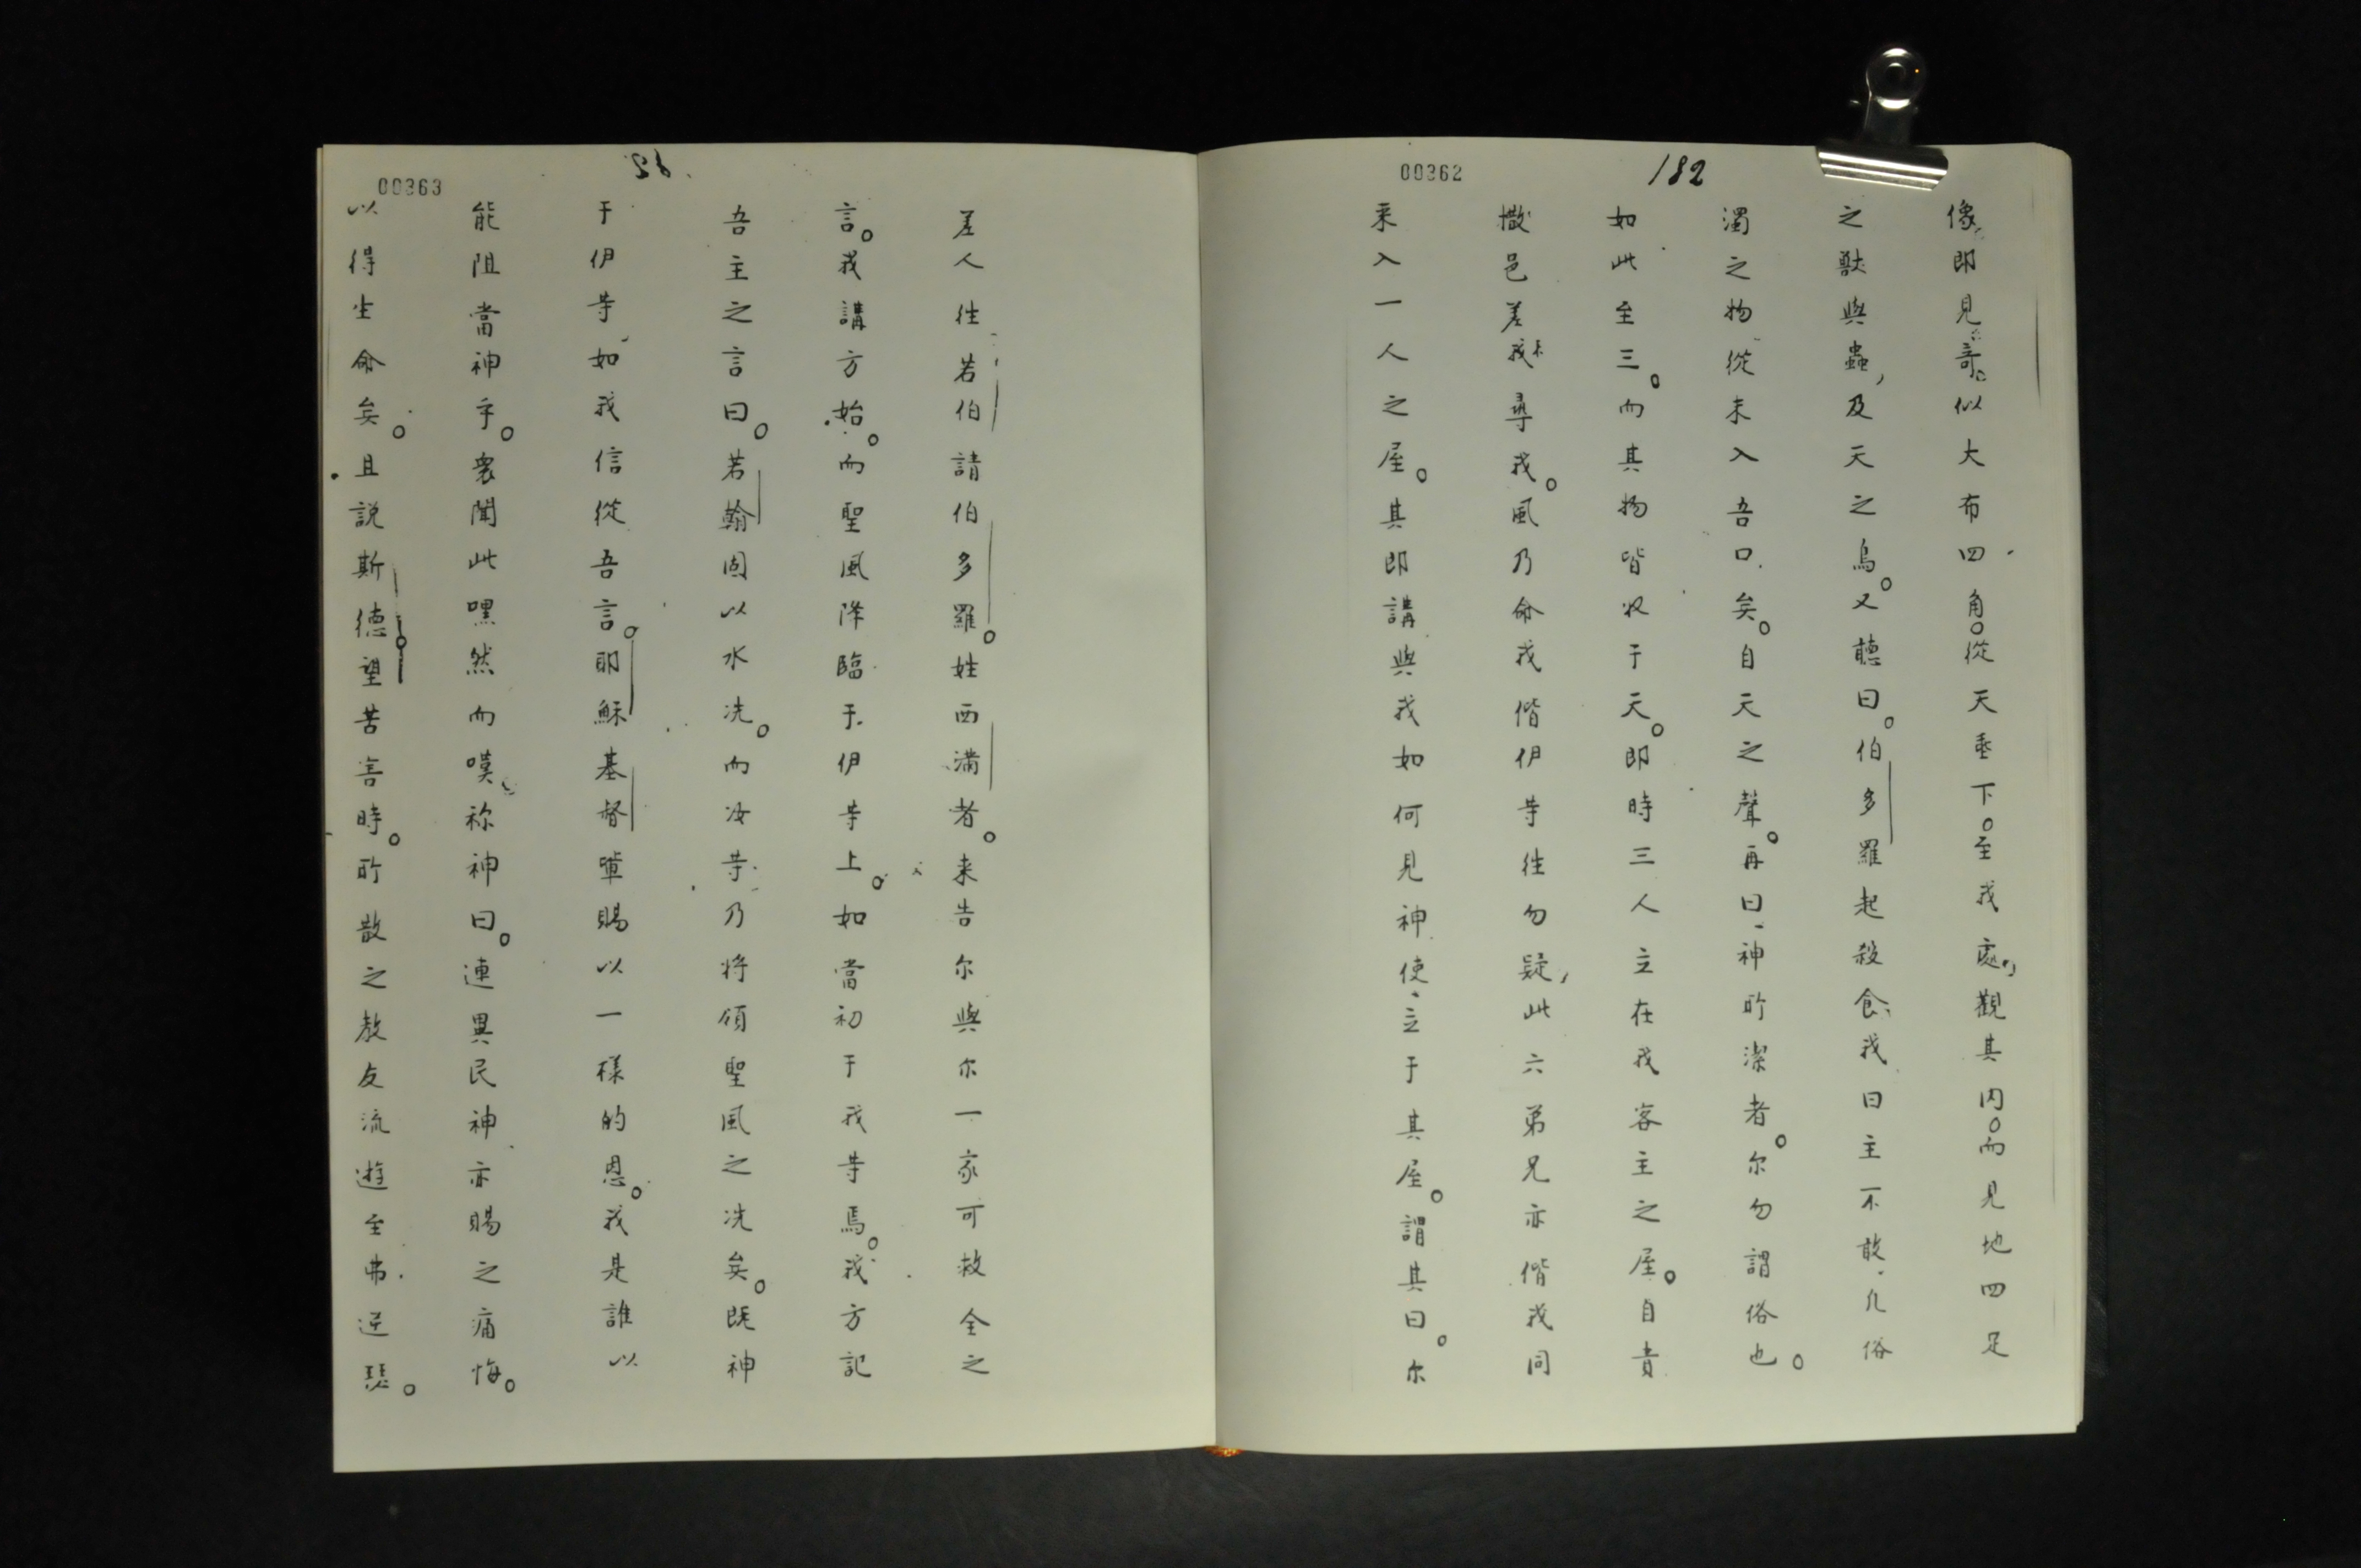 00362
182
像即見哥似大布四角。從天垂下。至我處，觀其内。而見地四足
之獸與蟲，及天之鳥。又聽曰。伯多羅起殺食、我曰主不敢、凡俗
濁之物從未入吾口矣。自天之聲。再曰、神所潔者。尔勿謂俗也。
如此至三。而其物皆收于天。即時三人立在我客主之屋。自責
撒邑差來我尋我。風乃命我偕伊等徃勿疑，此六弟兄亦偕我同
来入一人之屋。其即講與我如何見神使、立于其屋。謂其曰。尔
00363
差人徃若伯請伯多羅。姓西满者。来告尔與尔一家可救全之
言。我講方始。而聖風降臨于伊等上。如當初于我等焉。我方記
吾主之言曰。若翰固以水洗。而汝等乃将領聖風之洗矣。既神
于伊等如我信從吾言。耶穌基督輩賜以一樣的恩。我是誰以
能阻當神乎。衆聞此嘿然而嘆、祢神曰。連異民神亦賜之痛悔。
以得生命矣。且説斯德望苦害時。所散之教友流遊至弗逆瑟。